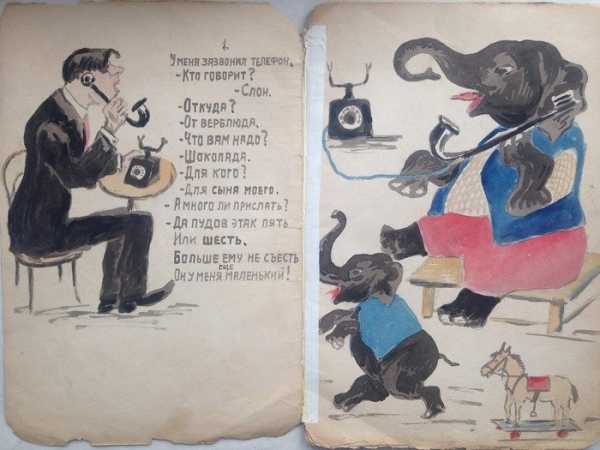 1.
У меня зазвонил телефон.
- Кто говорит?
- Слон.
- Откуда?
- От верблюда.
- Что вам надо?
- Шоколада.
- Для кого?
- Для сына моего.
- А много ли прислать?
- Да пудов этак пять
Или шесть.
Больше ему не съесть
Он у меня еще маленький!